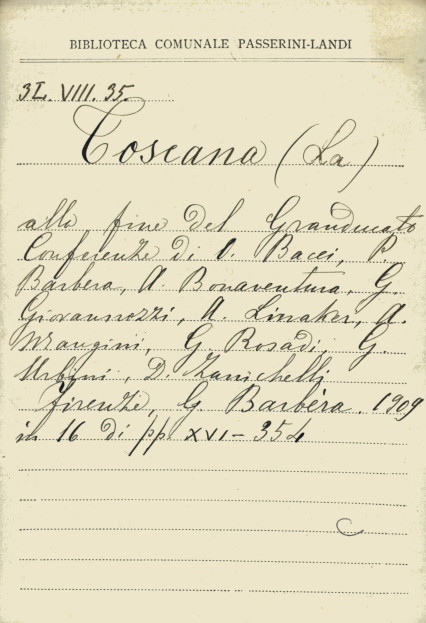 BIBLIOTECA COMUNALE PASSERINI-LANDI
3L. VIII. 35.
Toscana (La)
alla fine del Granducato
Conferenze di O. Bacci, P.
Barbera, A. Bonaventura, G.
Giovannozzi, A. Linaker, A.
Mangini, G. Rosadi. G.
Urbini, D. Zanichelli
Firenze, G. Barbèra. 1909
in 16 di pp. XVI-354